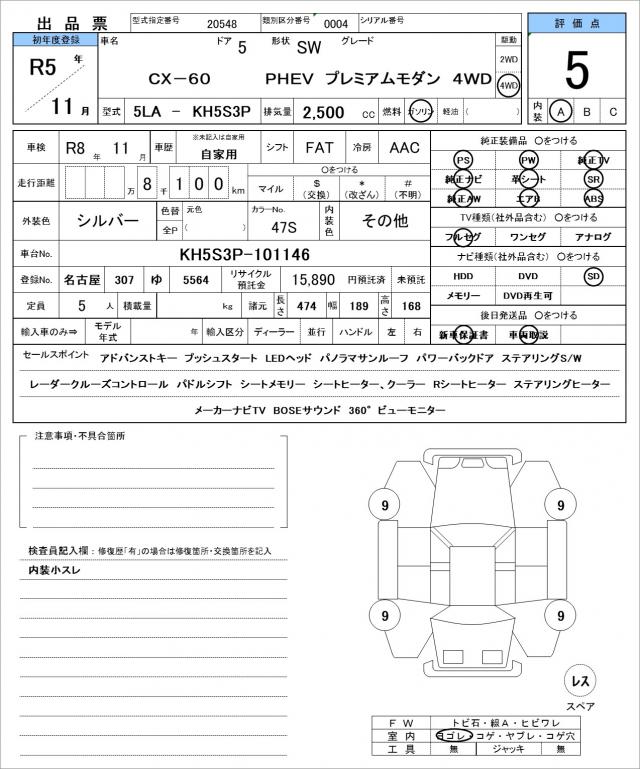 出品票 型式指定番号 20548 類別区分番号 0004 シリアル番号 評価点
初年度登録 車名 ドア 5 形状 SW グレード 駆動
R5 年 2WD
CX-60 PHEV プレミアムモダン 4WD 4WD 5
11 月 型式 5LA - KH5S3P 排気量 2,500 cc 燃料 ガソリン 軽油 ( ) 内装 A B C
車検 R8 年 11 月 車歴 ※未記入は自家用 自家用 シフト FAT 冷房 AAC 純正装備品 〇をつける
PS PW 純正TV
走行距離 万 8 千 1 0 0 km 〇をつける
マイル $ (交換) * (改ざん) # (不明) 純正ナビ 革シート SR
純正AW エアB ABS
外装色 シルバー 色替 元色 カラーNo. 内装色 その他 TV種類(社外品含む) 〇をつける
全P ( ) 47S フルセグ ワンセグ アナログ
車台No. KH5S3P-101146 ナビ種類(社外品含む) 〇をつける
登録No. 名古屋 307 ゆ 5564 リサイクル預託金 15,890 円預託済 未預託 HDD DVD SD
定員 5 人 積載量 kg 諸元 長さ 474 幅 189 高さ 168 メモリー DVD再生可
後日発送品 〇をつける
輸入車のみ⇒ モデル年式 年 輸入区分 ディーラー 並行 ハンドル 左 右 新車保証書 車両取説
セールスポイント アドバンストキー プッシュスタート LEDヘッド パノラマサンルーフ パワーバックドア ステアリングS/W
レーダークルーズコントロール パドルシフト シートメモリー シートヒーター、クーラー Rシートヒーター ステアリングヒーター
メーカーナビTV BOSEサウンド 360°ビューモニター
注意事項・不具合箇所
9 9
検査員記入欄：修復歴「有」の場合は修復箇所・交換箇所を記入
内装小スレ
9 9
レス
スペア
FW トビ石・線A・ヒビワレ
室内 ヨゴレ・コゲ・ヤブレ・コゲ穴
工具 無 ジャッキ 無